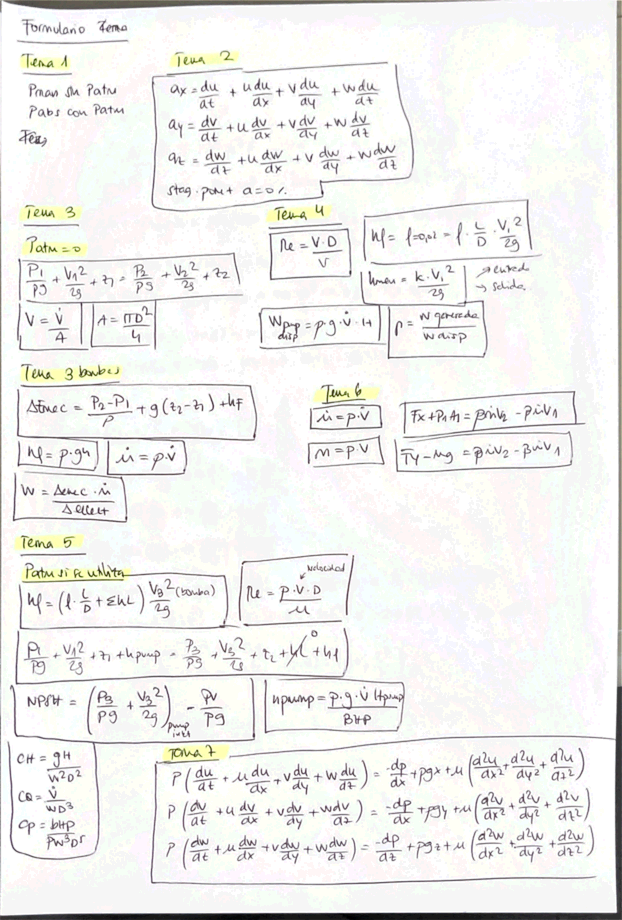 Formulario Tema
Tema 1
Pman sin Patm
Pabs con Patm
Tema 2
ax = du/dt + u du/dx + v du/dy + w du/dz
ay = dv/dt + u dv/dx + v dv/dy + w dv/dz
az = dw/dt + u dw/dx + v dw/dy + w dw/dz
stag. point a=0
Tema 3
Patm=0
P1/ρg + V1²/2g + z1 = P2/ρg + V2²/2g + z2
V = V̇/A
A = πD²/4
Tema 4
Re = V·D/ν
hf = f=0,02 = f · L/D · V1²/2g
hmen = k·V1²/2g → entrada
→ salida
Wpump disp = ρ·g·V̇·H
η = W generada / W disp
Tema 3 bombas
ΔEmec = P2-P1/ρ + g(z2-z1) + hf
hf = ρ·gh
ṁ = ρ·V̇
W = Δemec·ṁ /
Tema 6
ṁ = ρ·V̇
m = ρ·V
Fx + P1A1 = βṁV2 - βṁV1
Fy - mg = βṁV2 - βṁV1
Tema 5
Patm si se utiliza
hf = (f · L/D + ΣhL) V3²/2g (bomba)
velocidad
Re = ρ·V·D/μ
P1/ρg + V1²/2g + z1 + hpump = P3/ρg + V3²/2g + z2 + hL 0 + hf
NPSH = (P3/ρg + V3²/2g) pump inlet - PV/ρg
ηpump = ρ·g·V̇ Hpump / BHP
CH = gH/w²D²
CQ = V̇/wD³
Cp = bHp/ρw³D⁵
Tema 7
ρ (du/dt + u du/dx + v du/dy + w du/dz) = -dp/dx + ρgx + μ (d²u/dx² + d²u/dy² + d²u/dz²)
ρ (dv/dt + u dv/dx + v dv/dy + w dv/dz) = -dp/dx + ρgy + μ (d²v/dx² + d²v/dy² + d²v/dz²)
ρ (dw/dt + u dw/dx + v dw/dy + w dw/dz) = -dp/dz + ρgz + μ (d²w/dx² + d²w/dy² + d²w/dz²)